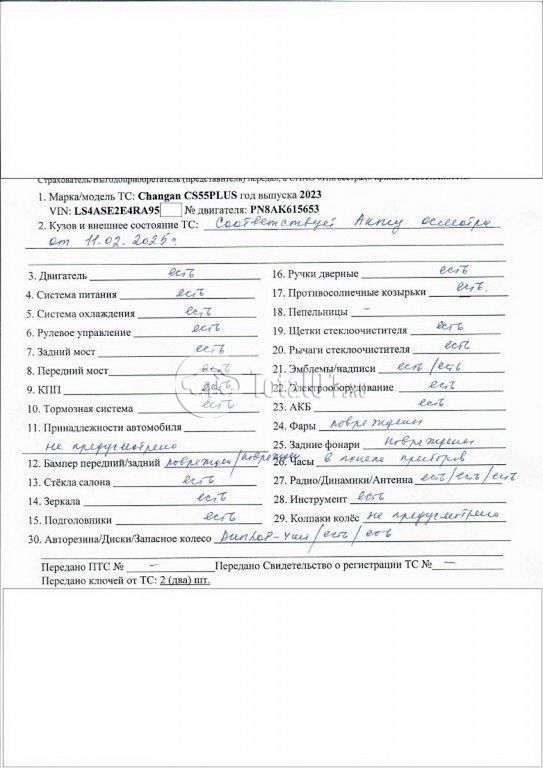 Страхователь/Выгодоприобретатель (представитель) передал, а СПАО
1. Марка/модель ТС: Changan CS55PLUS год выпуска 2023
VIN: LS4ASE2E4RA95 № двигателя: PN8AK615653
2. Кузов и внешнее состояние ТС: Соответствует Акту осмотра
от 11.02.2025г.
3. Двигатель есть
4. Система питания есть
5. Система охлаждения есть
6. Рулевое управление есть
7. Задний мост есть
8. Передний мост есть
9. КПП есть
10. Тормозная система есть
11. Принадлежности автомобиля
не предусмотрено
12. Бампер передний/задний поврежден/поврежден
13. Стёкла салона есть
14. Зеркала есть
15. Подголовники есть
16. Ручки дверные есть
17. Противосолнечные козырьки есть.
18. Пепельницы –
19. Щетки стеклоочистителя есть
20. Рычаги стеклоочистителя есть
21. Эмблемы/надписи есть/есть
22. Электрооборудование есть
23. АКБ есть
24. Фары повреждены
25. Задние фонари повреждены
26. Часы в панеле приборов
27. Радио/Динамики/Антенна есть/есть/есть
28. Инструмент есть
29. Колпаки колёс не предусмотрено
30. Авторезина/Диски/Запасное колесо Dunlop-4шт/есть/есть
Передано ПТС № – Передано Свидетельство о регистрации ТС № –
Передано ключей от ТС: 2 (два) шт.